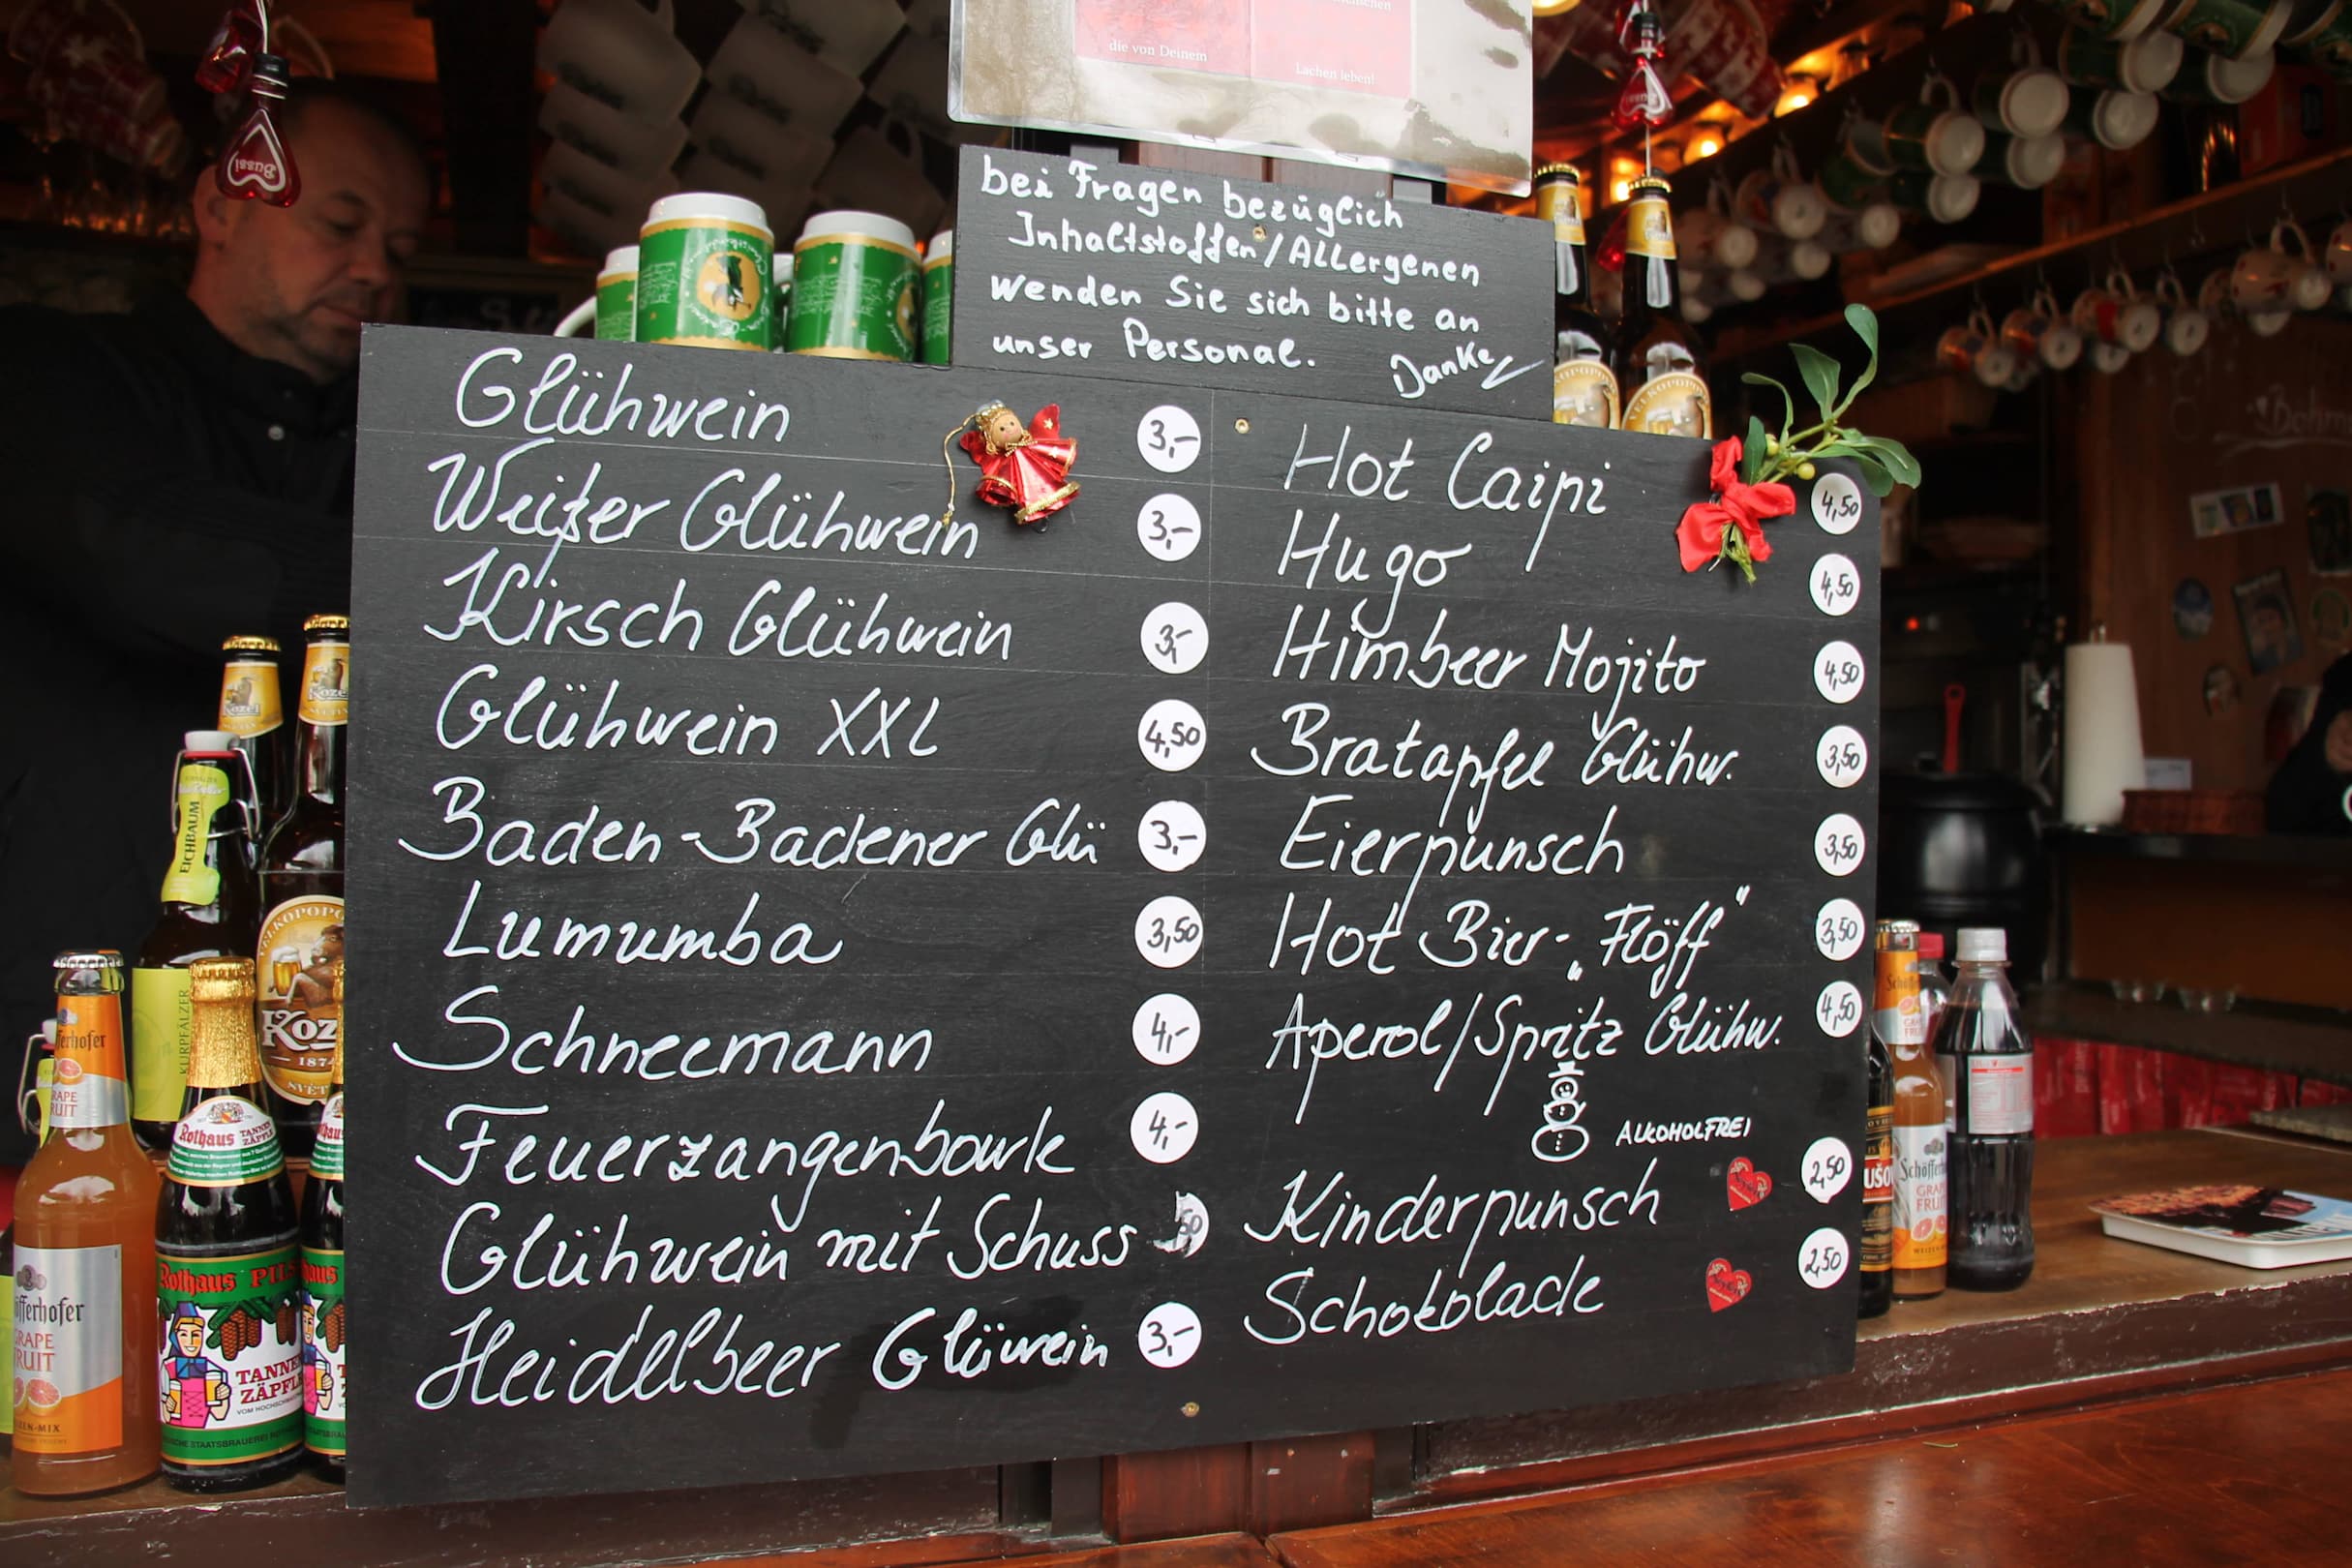 die von Deinem
Lachen leben!
bei Fragen bezüglich
Inhaltstoffen/Allergenen
wenden Sie sich bitte an
unser Personal.
Danke
Glühwein 3,-
Weißer Glühwein 3,-
Kirsch Glühwein 3,-
Glühwein XXL 4,50
Baden-Badener Glü 3,-
Lumumba 3,50
Schneemann 4,-
Feuerzangenbowle 4,-
Glühwein mit Schuss 50
Heidelbeer Glüwein 3,-
Hot Caipi 4,50
Hugo 4,50
Himbeer Mojito 4,50
Bratapfel Glühw. 3,50
Eierpunsch 3,50
Hot Bier-„Flöff" 3,50
Aperol/Spritz Glühw. 4,50
ALKOHOLFREI
Kinderpunsch 2,50
Schokolade 2,50
Bussi
Kozel
EICHBAUM
KURPFÄLZER
Koz
1874
GRAPE
FRUIT
Rothaus TANNEN
ZÄPFLE
Rothaus PILS
TANNEN
ZÄPFLE
Schöfferhofer
GRAPE
FRUIT